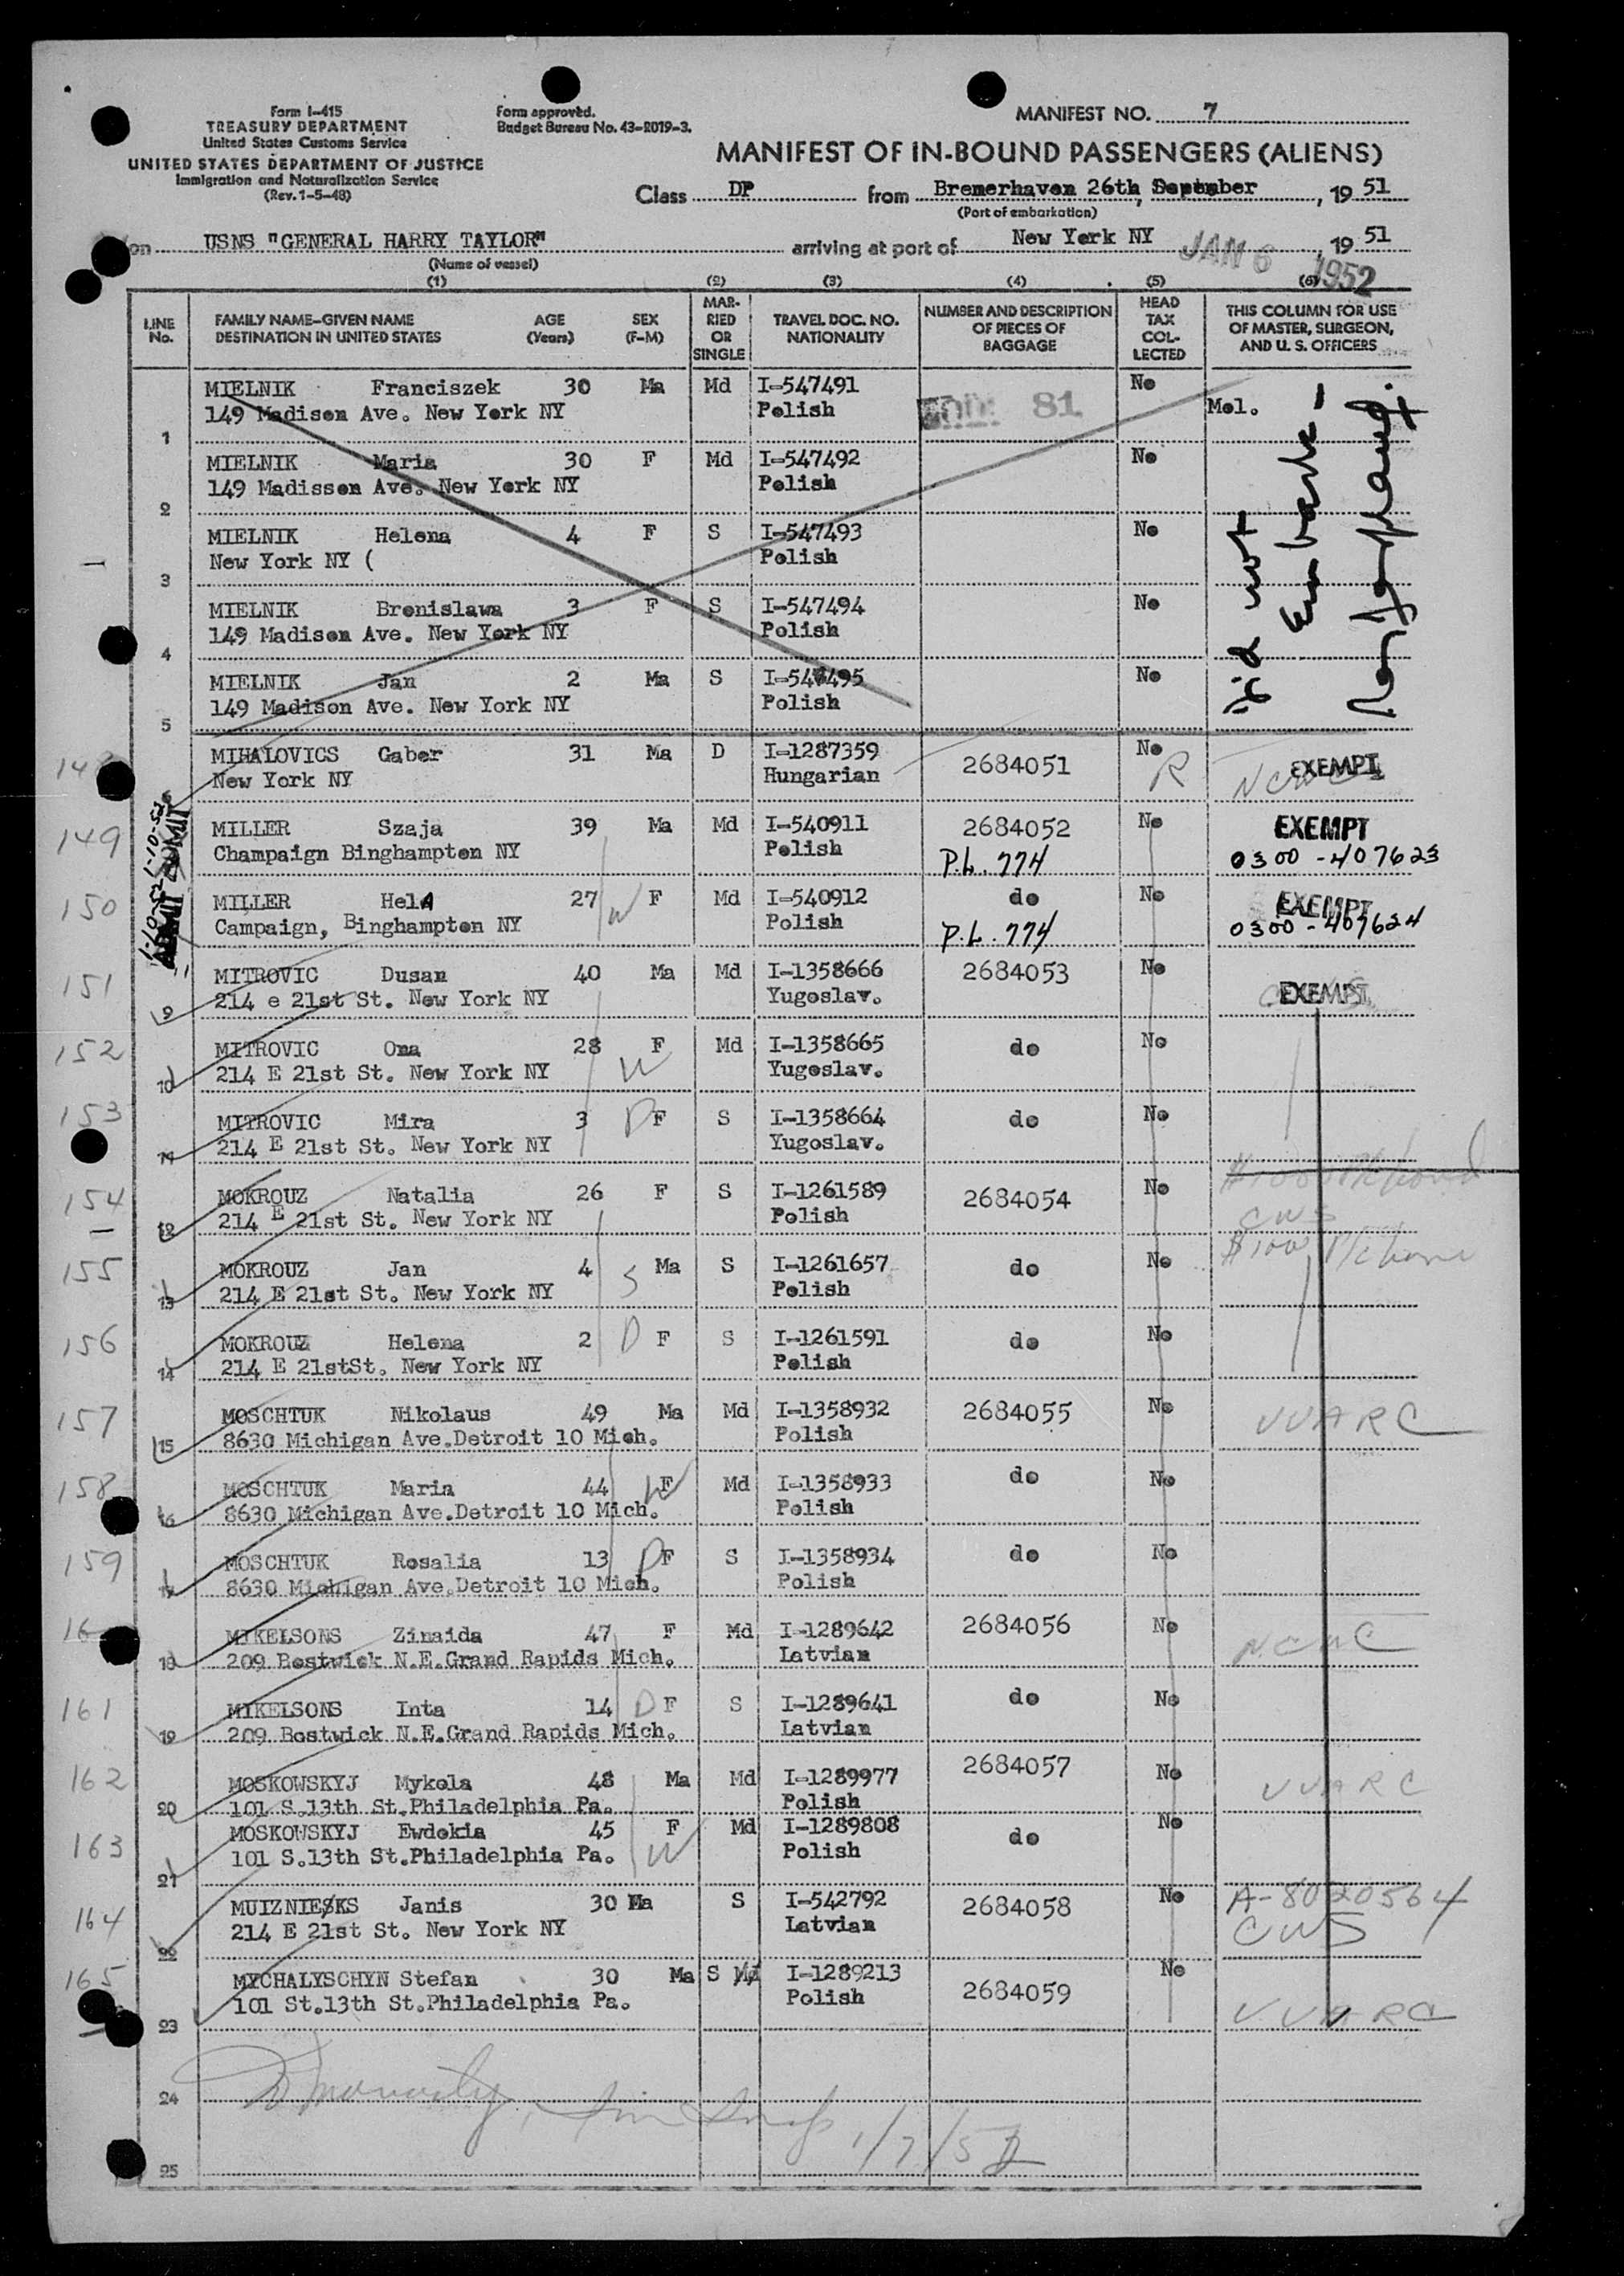 Form I-415
TREASURY DEPARTMENT
United States Customs Service
UNITED STATES DEPARTMENT OF JUSTICE
Immigration and Naturalization Service
(Rev. 1-5-48)
Form approved.
Budget Bureau No. 43-R019-3.
MANIFEST NO. 7
MANIFEST OF IN-BOUND PASSENGERS (ALIENS)
Class DP from Bremerhaven 26th, September, 19 51
(Port of embarkation)
on USNS "GENERAL HARRY TAYLOR" arriving at port of New York NY JAN 6, 19 51
1952
(Name of vessel)
(1) (2) (3) (4) (5) (6)
LINE No. FAMILY NAME-GIVEN NAME DESTINATION IN UNITED STATES AGE (Years) SEX (F-M) MARRIED OR SINGLE TRAVEL DOC. NO. NATIONALITY NUMBER AND DESCRIPTION OF PIECES OF BAGGAGE HEAD TAX COLLECTED THIS COLUMN FOR USE OF MASTER, SURGEON, AND U. S. OFFICERS
MIELNIK Franciszek 30 Ma Md I-547491 81 No Mol.
1 149 Madison Ave. New York NY Polish
Did not
Embark-
MIELNIK Maria 30 F Md I-547492 No
2 149 Madisson Ave. New York NY Polish
MIELNIK Helena 4 F S I-547493 No
3 New York NY ( Polish
MIELNIK Bronislawa 3 F S I-547494 No
4 149 Madison Ave. New York NY Polish
MIELNIK Jan 2 Ma S I-547495 No
5 149 Madison Ave. New York NY Polish
MIHALOVICS Gabor 31 Ma D I-1287359 2684051 No R EXEMPT
6 New York NY Hungarian
149 MILLER Szaja 39 Ma Md I-540911 2684052 No EXEMPT
Champaign Binghampton NY Polish P.L. 774 0300-407623
150 MILLER HelA 27 W F Md I-540912 do No EXEMPT
Campaign, Binghampton NY Polish P.L. 774 0300-407624
151 MITROVIC Dusan 40 Ma Md I-1358666 2684053 No EXEMPT
9 214 e 21st St. New York NY Yugoslav.
152 MITROVIC Ona 28 W F Md I-1358665 do No
10 214 E 21st St. New York NY Yugoslav.
153 MITROVIC Mira 3 D F S I-1358664 do No
11 214 E 21st St. New York NY Yugoslav.
154 MOKROUZ Natalia 26 F S I-1261589 2684054 No
12 214 E 21st St. New York NY Polish CWS
155 MOKROUZ Jan 4 S Ma S I-1261657 do No
13 214 E 21st St. New York NY Polish
156 MOKROUZ Helena 2 D F S I-1261591 do No
14 214 E 21stSt. New York NY Polish
157 MOSCHTUK Nikolaus 49 Ma Md I-1358932 2684055 No UUARC
15 8630 Michigan Ave.Detroit 10 Mich. Polish
158 MOSCHTUK Maria 44 W F Md I-1358933 do No
16 8630 Michigan Ave.Detroit 10 Mich. Polish
159 MOSCHTUK Rosalia 13 D F S I-1358934 do No
17 8630 Michigan Ave.Detroit 10 Mich. Polish
MIKELSONS Zinaida 47 F Md I-1289642 2684056 No NCWC
18 209 Bostwick N.E.Grand Rapids Mich. Latvian
161 MIKELSONS Inta 14 D F S I-1289641 do No
19 209 Bostwick N.E.Grand Rapids Mich. Latvian
162 MOSKOWSKYJ Mykola 48 Ma Md I-1289977 2684057 No UUARC
20 101 S.13th St.Philadelphia Pa. Polish
163 MOSKOWSKYJ Ewdokia 45 W F Md I-1289808 do No
21 101 S.13th St.Philadelphia Pa. Polish
164 MUIZNIEKS Janis 30 Ma S I-542792 2684058 No A-8020564
22 214 E 21st St. New York NY Latvian CWS
165 MYCHALYSCHYN Stefan 30 Ma S Md I-1289213 2684059 No
23 101 St.13th St.Philadelphia Pa. Polish UUARC
24
1/7/52
25